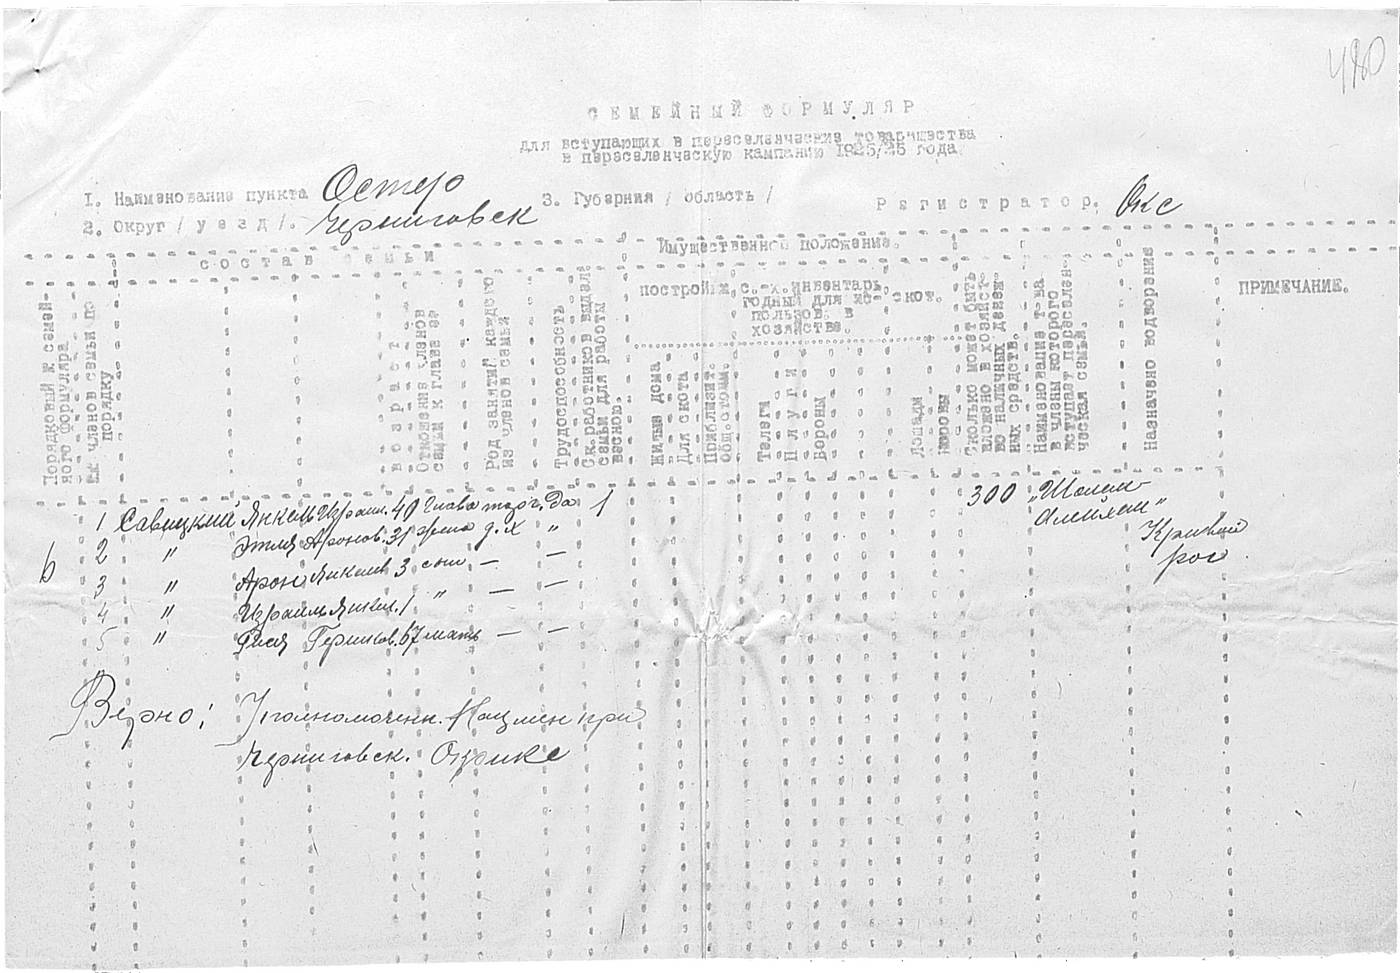 480
СЕМЕЙНЫЙ ФОРМУЛЯР
для вступающих в переселенческие товарищества
в переселенческую кампанию 1925/26 года
1. Наименование пункта Остер
3. Губерния / область /
Регистратор. Окс
2. Округ / уезд /. Черниговск
СОСТАВ СЕМЬИ
Имущественное положение.
Порядковый № семейного формуляра
№№ членов семьи по порядку
Возраст
Отношение членов семьи к главе ее
Род занятий каждого из членов семьи
Трудоспособность
Ск. работников выдел. семьи для работы весною.
постройки
с.-х. инвентарь годный для использов. в хозяйстве.
скот.
Жилые дома
Для скота
Приблизит. общ. стоим.
Телеги
Плуги
Бороны
Лошади
Коровы
Сколько может быть вложено в хозяйство наличных денежных средств.
Наименование т-ва в члены которого вступает переселенческая семья.
Назначено водворение
ПРИМЕЧАНИЕ.
6
1 Савицкий Янкель Израил. 40 Глава торг. Да 1 300 „Шолем-
Алейхем"
Кривой
рог
2 " Этля Аронов. 31 жена д.х "
3 " Арон Янкелев 3 сын — —
4 " Израиль Янкел. 1 " — —
5 " Геришков. 67 мать — —
Верно: Уполномоченн. Нацмен при
Черниговск. Окрике